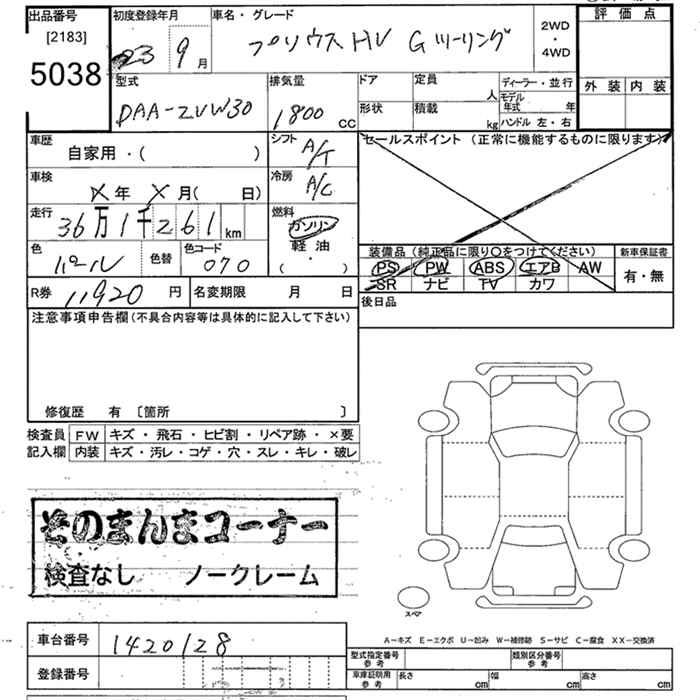 出品番号
[2183]
5038
初度登録年月
23 9 月
車名・グレード
プリウスHV Gツーリング
2WD
・
4WD
評価点
外装 内装
型式
DAA-ZVW30
排気量
1800 CC
ドア
形状
定員
人
積載
kg
ディーラー・並行
モデル
年式 年
ハンドル 左・右
車歴
自家用・( )
シフト
A/T
セールスポイント(正常に機能するものに限ります)
車検
X年 X月( 日)
冷房
A/C
走行
36万1千261km
燃料
ガソリン
軽油
( ・ )
色
パール
色替
色コード
070
装備品(純正品に限り〇をつけてください)
PS PW ABS エアB AW
SR ナビ TV カワ
新車保証書
有・無
R券 11920 円
名変期限 月 日
後日品
注意事項申告欄(不具合内容等は具体的に記入して下さい)
修復歴 有 〔箇所 〕
検査員
記入欄
FW キズ・飛石・ヒビ割・リペア跡・×要
内装 キズ・汚レ・コゲ・穴・スレ・キレ・破レ
そのまんまコーナー
検査なし ノークレーム
スペア
A－キズ E－エクボ U－凹み W－補修跡 S－サビ C－腐食 XX－交換済
車台番号 1420128
登録番号
型式指定番号
参考
類別区分番号
参考
車庫証明用
参考
長さ cm
幅 cm
高さ cm